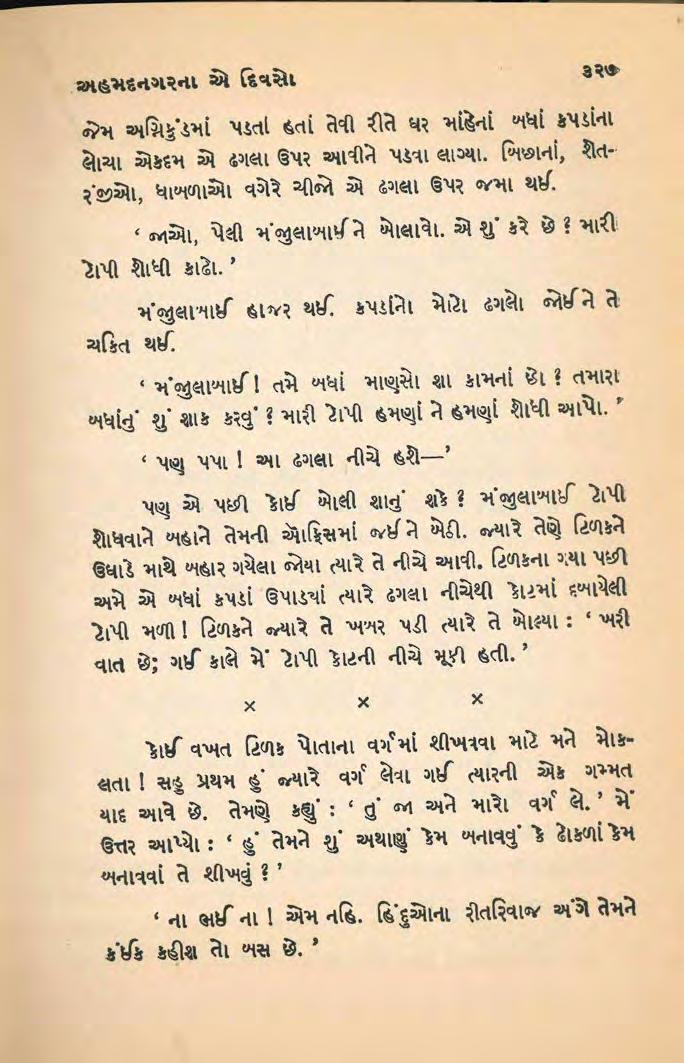 અહમદનગરના એ દિવસો
૩૨૭
જેમ અગ્નિકુંડમાં પડતાં હતાં તેવી રીતે ઘર માંહેનાં બધાં કપડાંના
લોચા એકદમ એ ઢગલા ઉપર આવીને પડવા લાગ્યા. બિછાનાં, શેત-
રંજીઓ, ધાબળાઓ વગેરે ચીજો એ ઢગલા ઉપર જમા થઈ.
‘ જાઓ, પેલી મંજુલાબાઈને બોલાવો. એ શું કરે છે ? મારી
ટોપી શોધી કાઢો. ’
મંજુલાબાઈ હાજર થઈ. કપડાંનો મોટો ઢગલો જોઈને તે
ચકિત થઈ.
‘ મંજુલાબાઈ ! તમે બધાં માણસો શા કામનાં છો ? તમારા
બધાંનું શું શાક કરવું ? મારી ટોપી હમણાં ને હમણાં શોધી આપો. ’
‘ પણ પપા ! આ ઢગલા નીચે હશે—’
પણ એ પછી કોઈ બોલી શાનું શકે ? મંજુલાબાઈ ટોપી
શોધવાને બહાને તેમની ઑફિસમાં જઈને બેઠી. જ્યારે તેણે ટિળકને
ઉઘાડે માથે બહાર ગયેલા જોયા ત્યારે તે નીચે આવી. ટિળકના ગયા પછી
અમે એ બધાં કપડાં ઉપાડ્યાં ત્યારે ઢગલા નીચેથી કોટમાં દબાયેલી
ટોપી મળી ! ટિળકને જ્યારે તે ખબર પડી ત્યારે તે બોલ્યા : ‘ ખરી
વાત છે; ગઈ કાલે મેં ટોપી કોટની નીચે મૂકી હતી. ’
× × ×
કોઈ વખત ટિળક પોતાના વર્ગમાં શીખવવા માટે મને મોક-
લતા ! સહુ પ્રથમ હું જ્યારે વર્ગ લેવા ગઈ ત્યારની એક ગમ્મત
યાદ આવે છે. તેમણે કહ્યું : ‘ તું જા અને મારો વર્ગ લે. ’ મેં
ઉત્તર આપ્યો : ‘ હું તેમને શું અથાણું કેમ બનાવવું કે ઢોકળાં કેમ
બનાવવાં તે શીખવું ? ’
‘ ના ભઈ ના ! એમ નહિ. હિંદુઓના રીતરિવાજ અંગે તેમને
કંઈક કહીશ તો બસ છે. ’